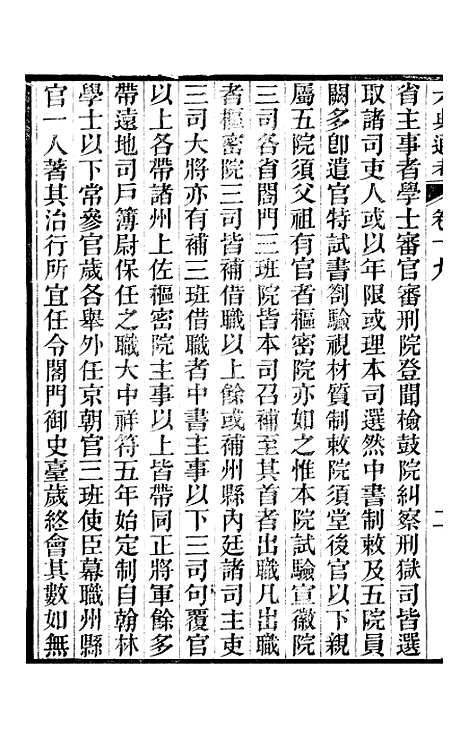 六典通考 卷十九 二
省主事者學士審官審刑院登聞檢鼓院糾察刑獄司皆選
取諸司吏人或以年限或理本司選然中書制敕及五院員
闕多卽遣官特試書劄驗視材質制敕院須堂後官以下親
屬五院須父祖有官者樞密院亦如之惟本院試驗宣徽院
三司各省閤門三班院皆本司召補至其首者出職凡出職
者樞密院三司皆補借職以上餘或補州縣內廷諸司主吏
三司大將亦有補三班借職者中書主事以下三司句覆官
以上各帶諸州上佐樞密院主事以上皆帶同正將軍餘多
帶遠地司戶簿尉保任之職大中祥符五年始定制自翰林
學士以下常參官歲各舉外任京朝官三班使臣幕職州縣
官一人著其治行所宜任令閤門御史臺歲終會其數如無